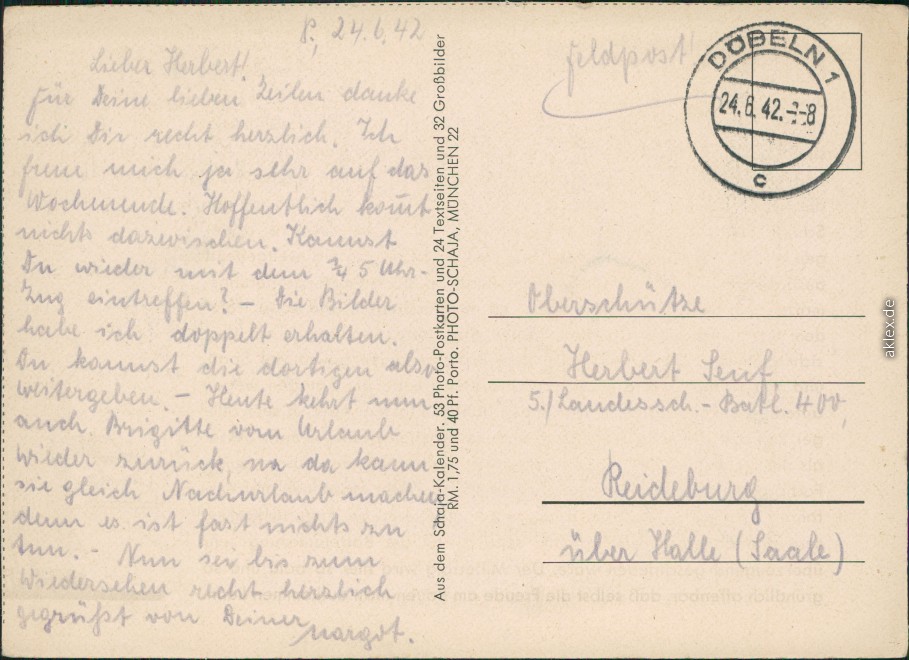 P., 24.6.42
Lieber Herbert!
Für Deine lieben Zeilen danke
ich Dir recht herzlich. Ich
freue mich ja sehr auf das
Wochenende. Hoffentlich kom̄t
nichts dazwischen. Kannst
Du wieder mit dem ¾ 5 Uhr-
Zug eintreffen? – Die Bilder
habe ich doppelt erhalten.
Du kannst die dortigen also
weitergeben. – Heute kehrt nun
auch Brigitte vom Urlaub
wieder zurück, na da kann
sie gleich Nachurlaub machen
denn es ist fast nichts zu
tun. – Nun sei bis zum
Wiedersehen recht herzlich
gegrüßt von Deiner
Margot.
Aus dem Schaja-Kalender. 53 Photo-Postkarten und 24 Textseiten und 32 Großbilder
RM. 1,75 und 40 Pf. Porto. PHOTO-SCHAJA, MÜNCHEN 22
Feldpost
DÖBELN 1
24.6.42.
c
Oberschütze
Herbert Senf,
5./Landessch.-Batl. 400,
Reideburg
über Halle (Saale)
aklex.de